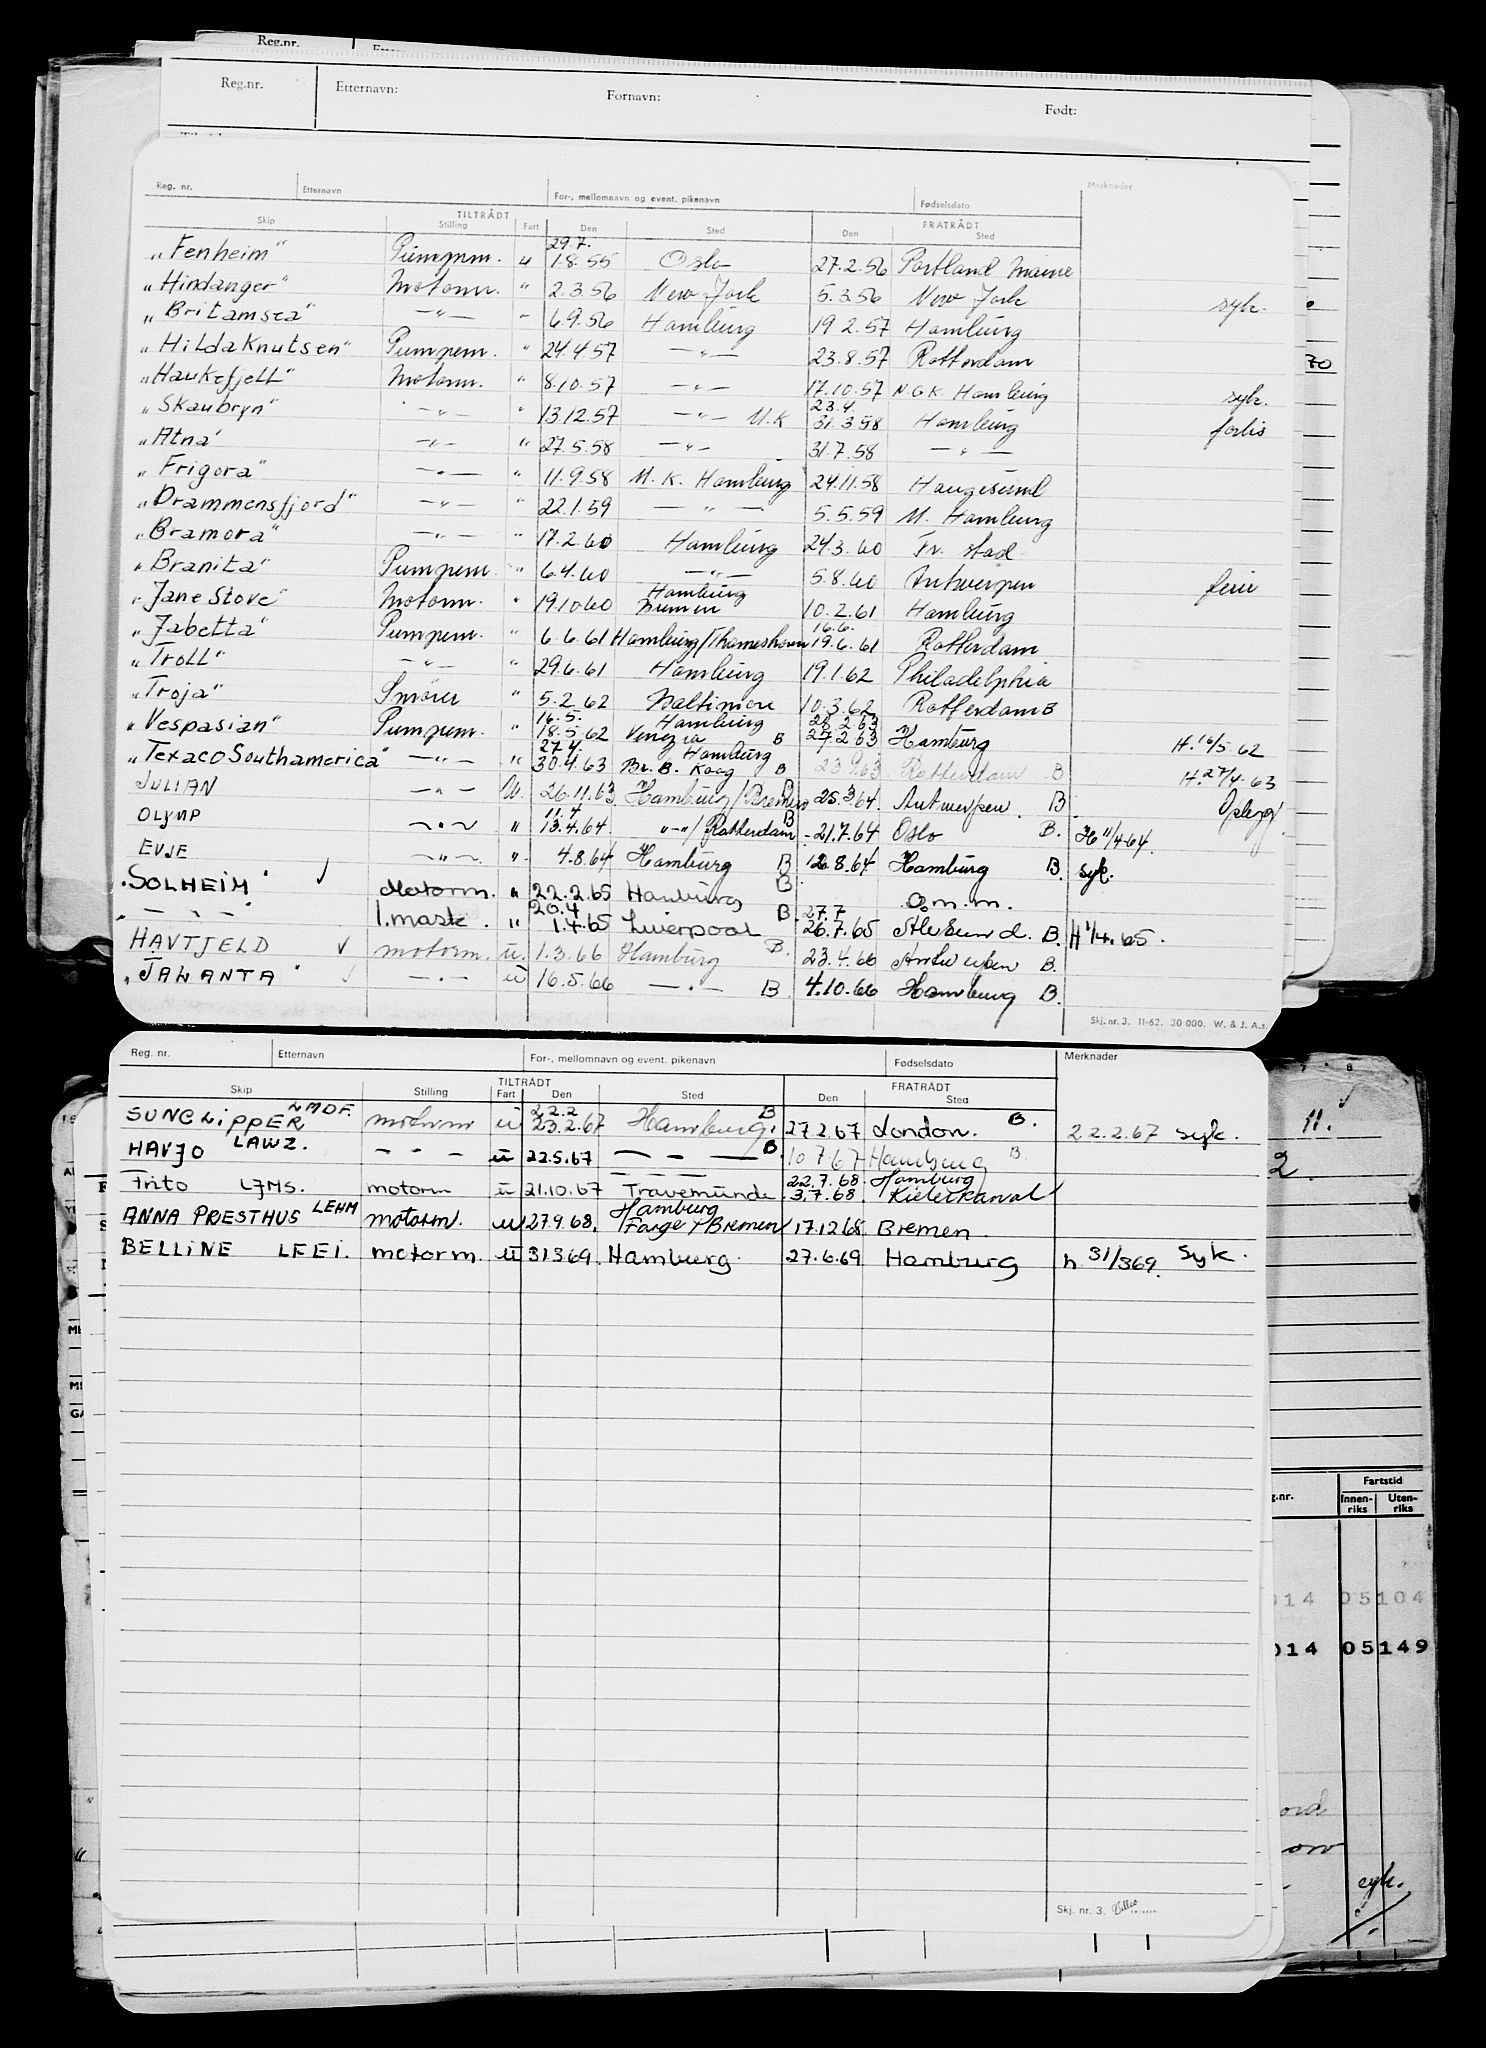 Reg.nr.
Reg.nr. Etternavn: Fornavn: Født:
Reg. nr. Etternavn For-, mellomnavn og event. pikenavn Fødselsdato Merknader
TILTRÅDT FRATRÅDT
Skip Stilling Fart Den Sted Den Sted
29.7.
"Fenheim" Pumpem. u 1.8.55 Oslo 27.2.56 Portland Maine
"Hindanger" Motorm. " 2.3.56 New York 5.3.56 New York syk.
"Britamsea" -"- " 6.9.56 Hamburg 19.2.57 Hamburg
"Hilda Knutsen" Pumpem. " 24.4.57 -"- 23.8.57 Rotterdam
"Haukefjell" Motorm. " 8.10.57 -"- 17.10.57 N.G.K. Hamburg syk.
23.4.
"Skaubryn" -"- " 13.12.57 -"- M.K 31.3.58 Hamburg forlis
"Atna" -"- " 27.5.58 -"- 31.7.58 -"-
"Frigora" -"- " 11.9.58 M.K. Hamburg 24.11.58 Haugesund
"Drammensfjord" -"- " 22.1.59 -"- 5.5.59 M. Hamburg
"Bramora" -"- " 17.2.60 Hamburg 24.3.60 Fr. stad
"Branita" Pumpem. " 6.4.60 -"- 5.8.60 Antwerpen ferie
Hamburg
"Jane Stove" Motorm. " 19.10.60 Bremen 10.2.61 Hamburg
16.6.
"Jabetta" Pumpem. " 6.6.61 Hamburg/Thameshaven 19.6.61 Rotterdam
"Troll" -"- " 29.6.61 Hamburg 19.1.62 Philadelphia
"Troja" Smører " 5.2.62 Baltimore 10.3.62 Rotterdam B
16.5. Hamburg 28.2.63
"Vespasian" Pumpem. " 18.5.62 Venezia B 27.2.63 Hamburg H. 16/5 62
27.4. Hamburg
"Texaco Southamerica" -"- " 30.4.63 Br. B. Koog B 23.9.63 Rotterdam B H. 27/4.63
JULIAN -"- U. 26.11.63 Hamburg/Bremen B 25.3.64 Antwerpen B Oplegg
11.4
OLYMP -"- " 13.4.64 "-"/Rotterdam B 21.7.64 Oslo B. H 11/4-64.
EVJE -"- " 4.8.64 Hamburg B 12.8.64 Hamburg B. syk.
"SOLHEIM" ✓ Motorm. " 22.2.65 Hamburg B o.m.m.
20.4 27.7
" - " - " 1.mask. " 1.4.65 Liverpool B 26.7.65 Ålesund. B. H 1/4.65.
HAVTJELD ✓ motorm. u. 1.3.66 Hamburg B. 23.4.66 Antwerpen B.
"JALANTA" ✓ -"- u 16.5.66 -"- B. 4.10.66 Hamburg B.
Skj. nr. 3. 11-62. 30 000. W. & J. A.s.
Reg. nr. Etternavn For-, mellomnavn og event. pikenavn Fødselsdato Merknader
TILTRÅDT FRATRÅDT
Skip Stilling Fart Den Sted Den Sted
22.2
SUNCLIPPER LMDF. motorm u 23.2.67 Hamburg. B 27.2.67 London. B. 22.2.67 syk.
HAVJO LAWZ. - " - u 22.5.67 - - - B. 10.7.67 Hamburg B.
22.7.68 Hamburg
Frito LJMS. motorm u 21.10.67 Travemünde 3.7.68 Kielerkanal
Hamburg
ANNA PRESTHUS LEHM motorm. u 27.9.68. Farge/Bremen 17.12.68. Bremen.
BELLINE LEEI. motorm. u 31.3.69. Hamburg. 27.6.69 Hamburg h 31/369. syk.
Skj. nr. 3.
70
11.
2
g.nr. Fartstid
Innen-riks Uten-riks
014 05104
014 05149
ord
syk.